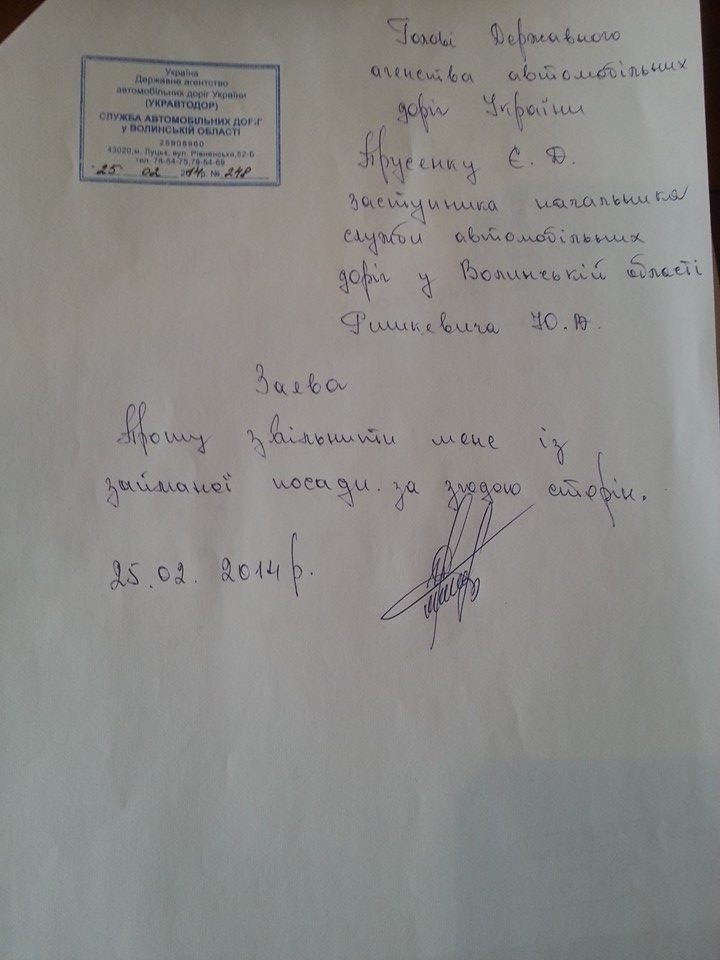 Україна
Державне агентство
автомобільних доріг України
(УКРАВТОДОР)
СЛУЖБА АВТОМОБІЛЬНИХ ДОРІГ
у ВОЛИНСЬКІЙ ОБЛАСТІ
25908960
43020,м. Луцьк, вул. Рівненська,52-б
тел. 78-54-75,78-54-69
25 02 2014р. № 248
Голові Державного
агенства автомобільних
доріг України
Прусенку Є. Д.
заступника начальника
служби автомобільних
доріг у Волинській області
Ришкевича Ю. А.
Заява
Прошу звільнити мене із
займаної посади за згодою сторін.
25.02. 2014 р.